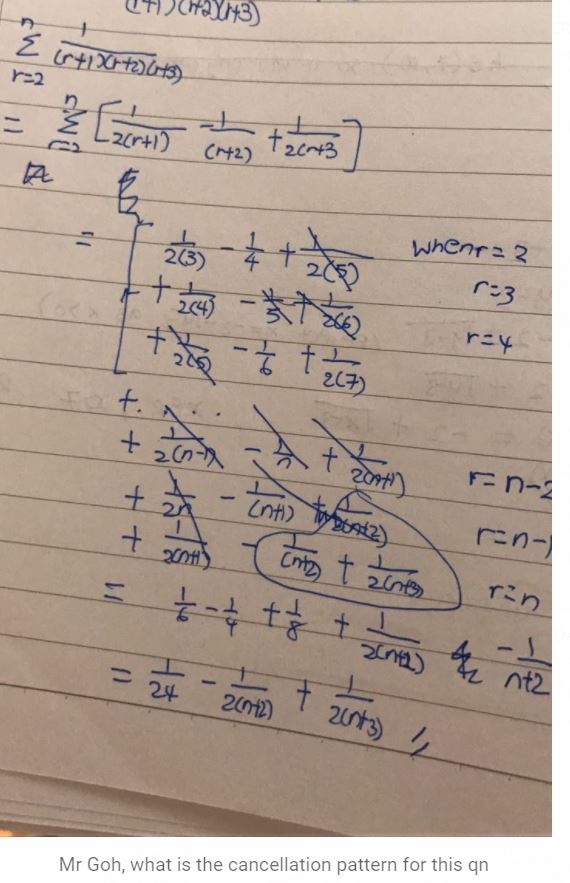 (r+1)(r+2)(r+3)
n
Σ 1/((r+1)(r+2)(r+3))
r=2
= n Σ r=2 [1/(2(r+1)) - 1/(r+2) + 1/(2(r+3)]
= [ 1/(2(3)) - 1/4 + 1/(2(5)) when r = 2
+ 1/(2(4)) - 1/5 + 1/(2(6)) r=3
+ 1/(2(5)) - 1/6 + 1/(2(7)) r=4
+ . . . .
+ 1/(2(n-1)) - 1/n + 1/(2(n+1)) r=n-2
+ 1/(2n) - 1/(n+1) + 1/(2(n+2)) r=n-1
+ 1/(2(n+1)) - 1/(n+2) + 1/(2(n+3)) r=n
= 1/6 - 1/4 + 1/8 + 1/(2(n+2)) - 1/(n+2)
= 1/24 - 1/(2(n+2)) + 1/(2(n+3)) //
Mr Goh, what is the cancellation pattern for this qn